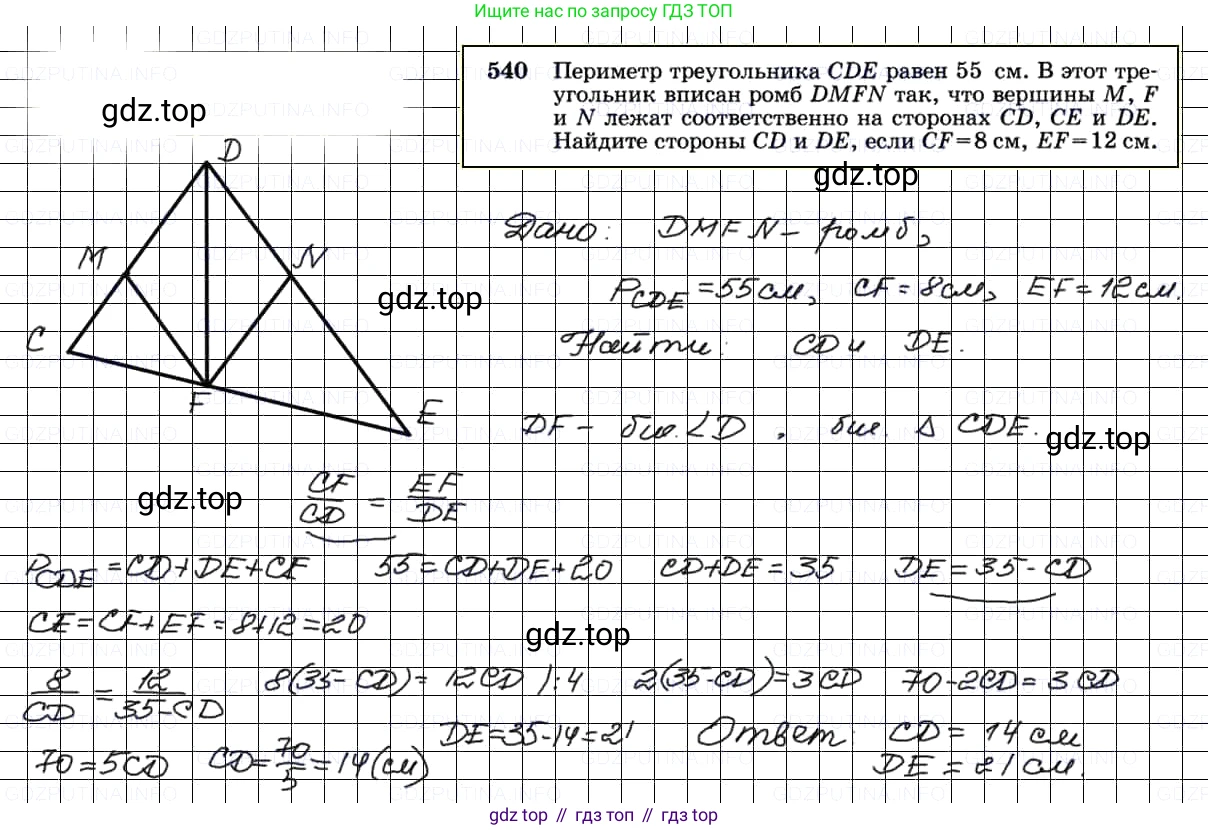 Ищите нас по запросу ГДЗ ТОП
540 Периметр треугольника CDE равен 55 см. В этот тре-
угольник вписан ромб DMFN так, что вершины M, F
и N лежат соответственно на сторонах CD, CE и DE.
Найдите стороны CD и DE, если CF=8 см, EF=12 см.
gdz.top
gdz.top
D
M
N
C
F
E
gdz.top
Дано: DMFN – ромб,
P_CDE = 55 см, CF = 8 см, EF = 12 см.
Найти: CD и DE.
DF – бис. ∠D, бис. Δ CDE.
gdz.top
gdz.top
CF/CD = EF/DE
P_CDE = CD+DE+CE 55 = CD+DE+20 CD+DE = 35 DE = 35 - CD
CE = CF+EF = 8+12 = 20
gdz.top
8/CD = 12/35-CD 8(35-CD) = 12CD |:4 2(35-CD) = 3CD 70-2CD = 3CD
70 = 5CD CD = 70/5 = 14 (см) DE = 35-14 = 21 Ответ: CD = 14 см
DE = 21 см.
gdz top // гдз топ // gdz.top
GDZPUTINA.INFO